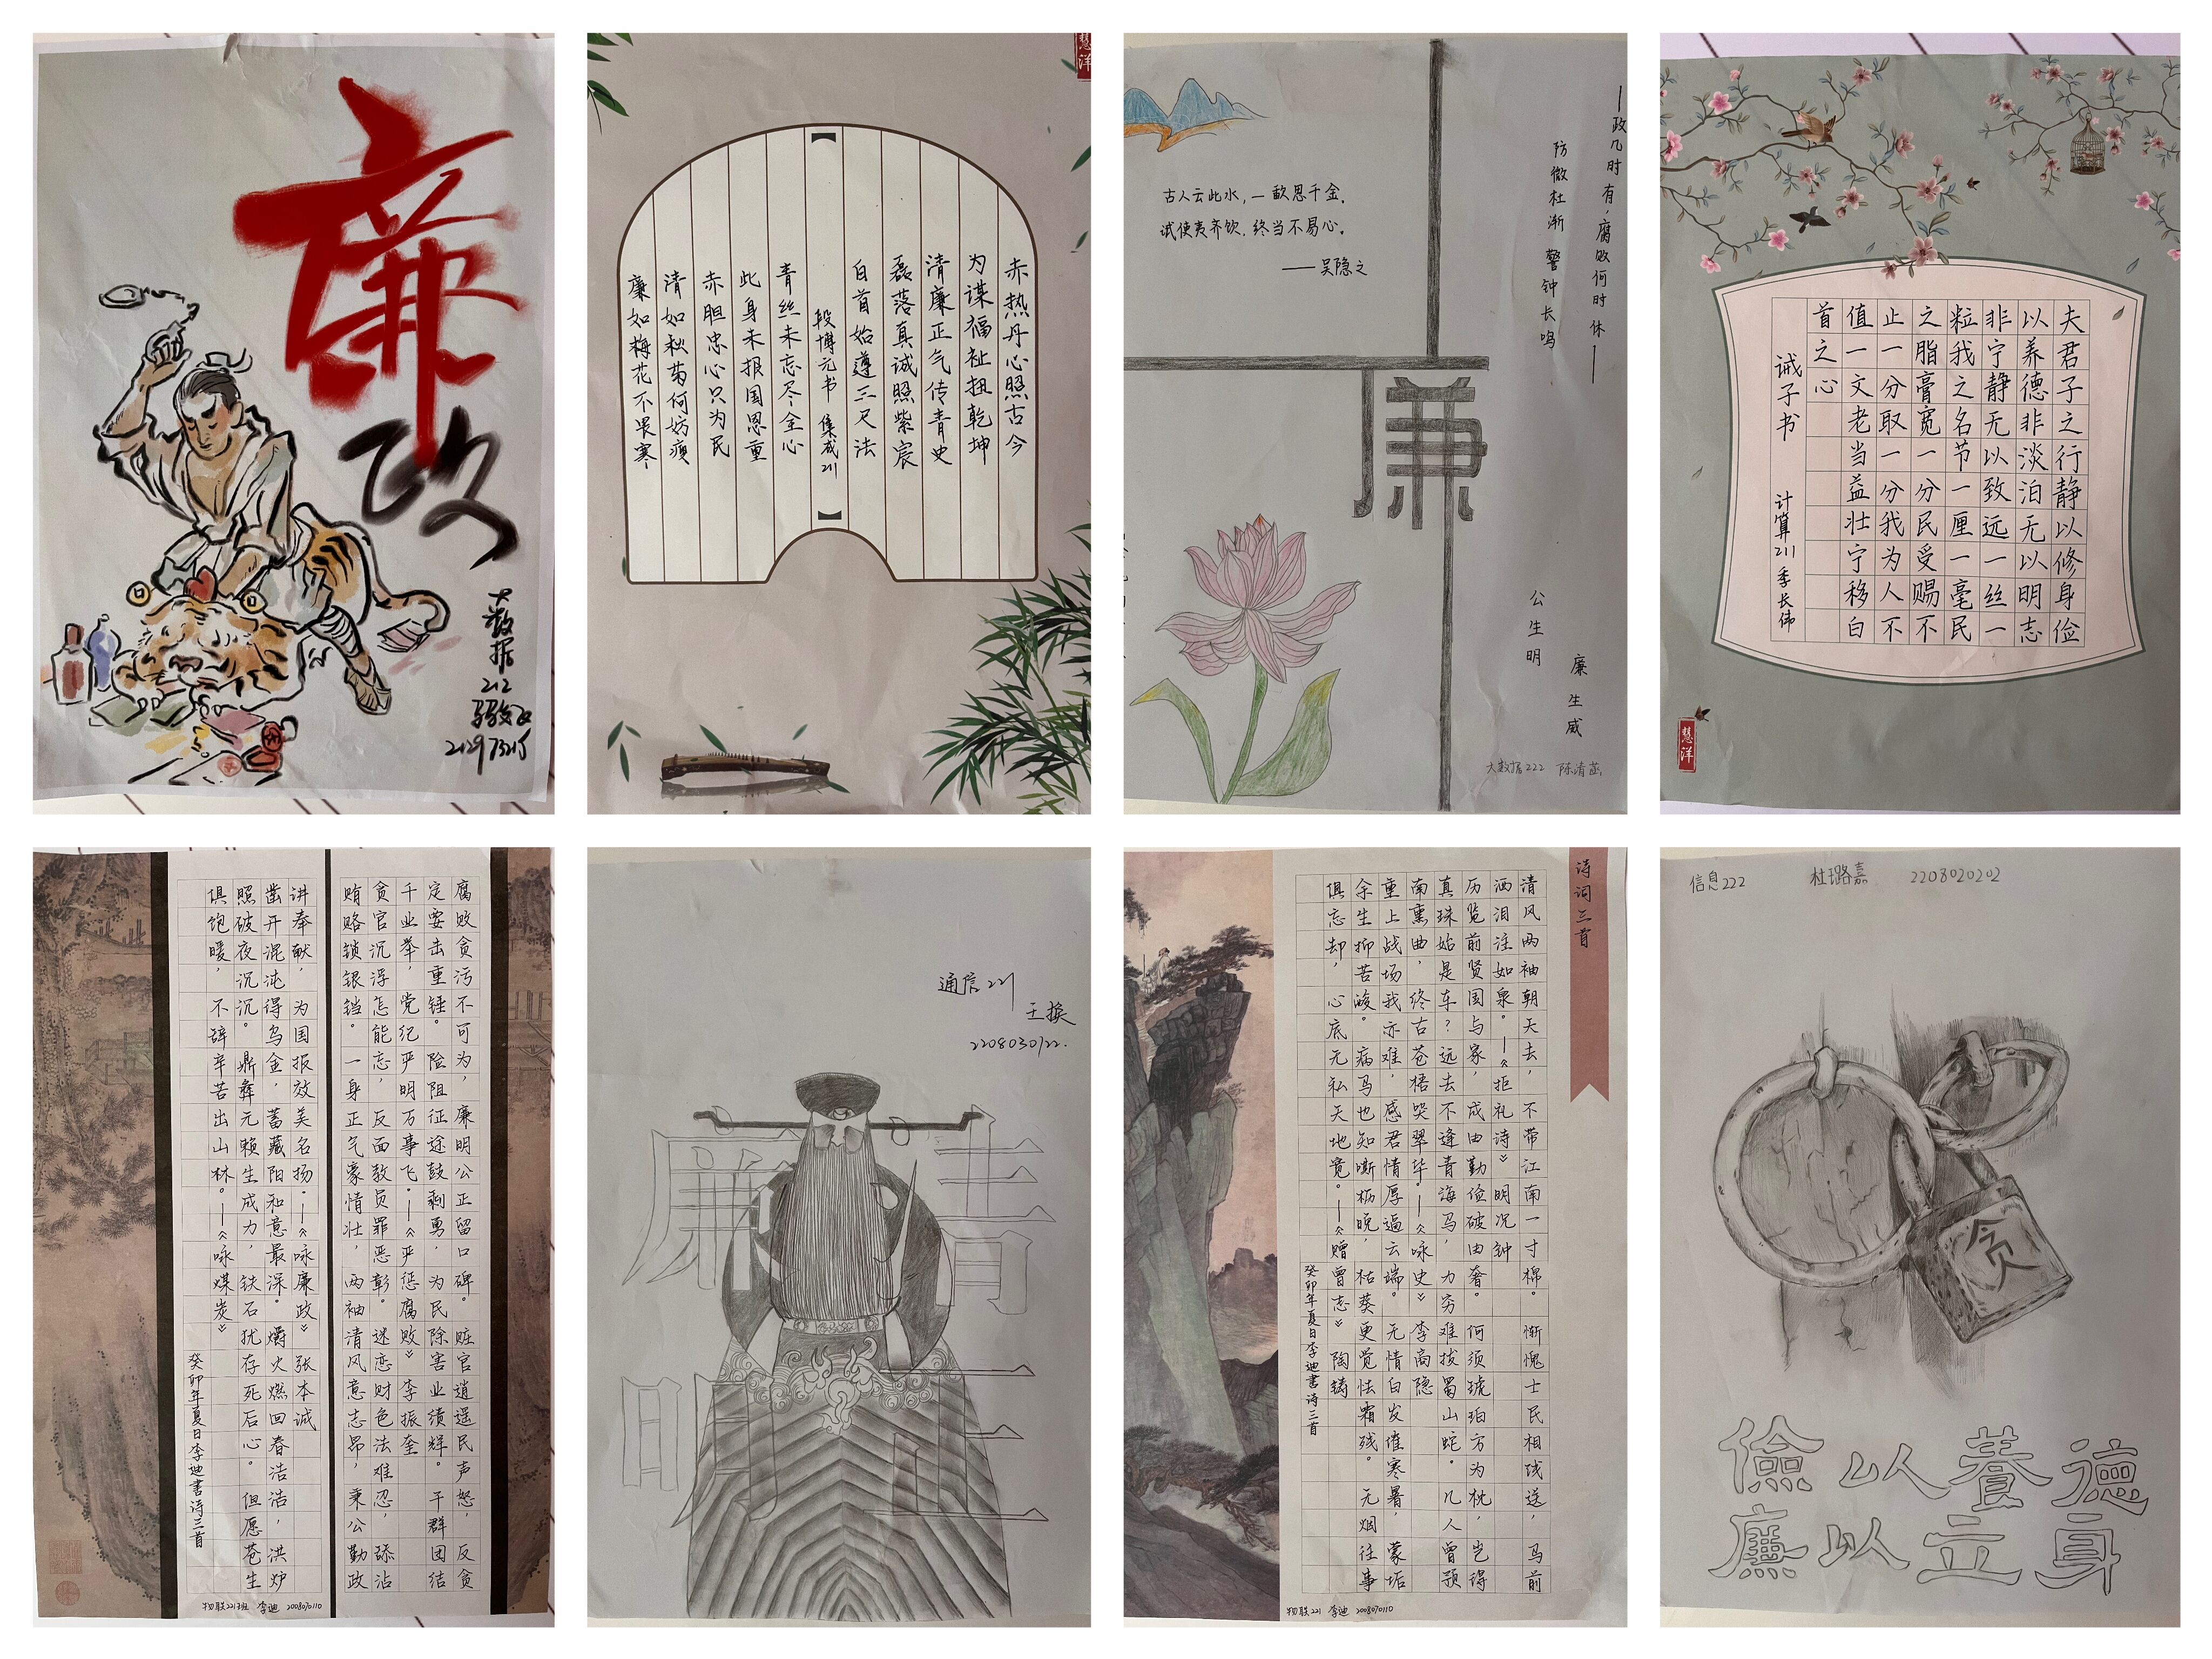 廉政
大数据
212
212973215
慧洋
赤热丹心照古今
为谋福祉扭乾坤
清廉正气传青史
磊落真诚照紫宸
白首始遵三尺法
【段博元书 集成211】
青丝未忘尽全心
此身未报国恩重
赤胆忠心只为民
清如秋菊何妨瘦
廉如梅花不畏寒
古人云此水,一歃思千金.
试使夷齐饮,终当不易心。
——吴隐之
——政几时有,腐败何时休——
防微杜渐 警钟长鸣
廉
公生明
廉生威
大数据222 陈清
夫君子之行静以修身俭
以养德非淡泊无以明志
非宁静无以致远一丝一
粒我之名节一厘一毫民
之脂膏宽一分民受赐不
止一分取一分我为人不
值一文老当益壮宁移白
首之心
诫子书 计算211 季长伟
慧洋
腐败贪污不可为，廉明公正留口碑。赃官逍遥民声怒，反贪
定要击重锤。险阻征途鼓剩勇，为民除害业绩辉。干群团结
千业举，党纪严明万事飞。——《严惩腐败》李振奎
贪官沉浮怎能忘，反面教员罪恶彰。迷恋财色法难忍，舔沾
贿赂锁银铛。一身正气豪情壮，两袖清风意志昂，秉公勤政
讲奉献，为国报效美名扬。——《咏廉政》张本诚
凿开混沌得乌金，蓄藏阳和意最深。爝火燃回春浩浩，洪炉
照破夜沉沉。鼎彝元赖生成力，铁石犹存死后心。但愿苍生
俱饱暖，不辞辛苦出山林。——《咏煤炭》
癸卯年夏日李迪書诗三首
物联221班 李迪 2008070110
通信221
王换
2208030122.
廉青
明正
诗词三首
清风两袖朝天去，不带江南一寸棉。惭愧士民相饯送，马前
洒泪注如泉。——《拒礼诗》明况钟
历览前贤国与家，成由勤俭破由奢。何须琥珀方为枕，岂得
真珠始是车？远去不逢青海马，力穷难拔蜀山蛇。几人曾预
南熏曲，终古苍梧哭翠华。——《咏史》李商隐
重上战场我亦难，感君情厚逼云端。无情白发催寒暑，蒙垢
余生抑苦酸。病马也知嘶枥晚，枯葵更觉怯霜残。无烟往事
俱忘却，心底无私天地宽。——《赠曾志》陶铸
癸卯年夏日李迪書诗三首
物联221 李迪 2008070110
信息222 杜璐嘉 2208020202
贪
儉以養德
廉以立身